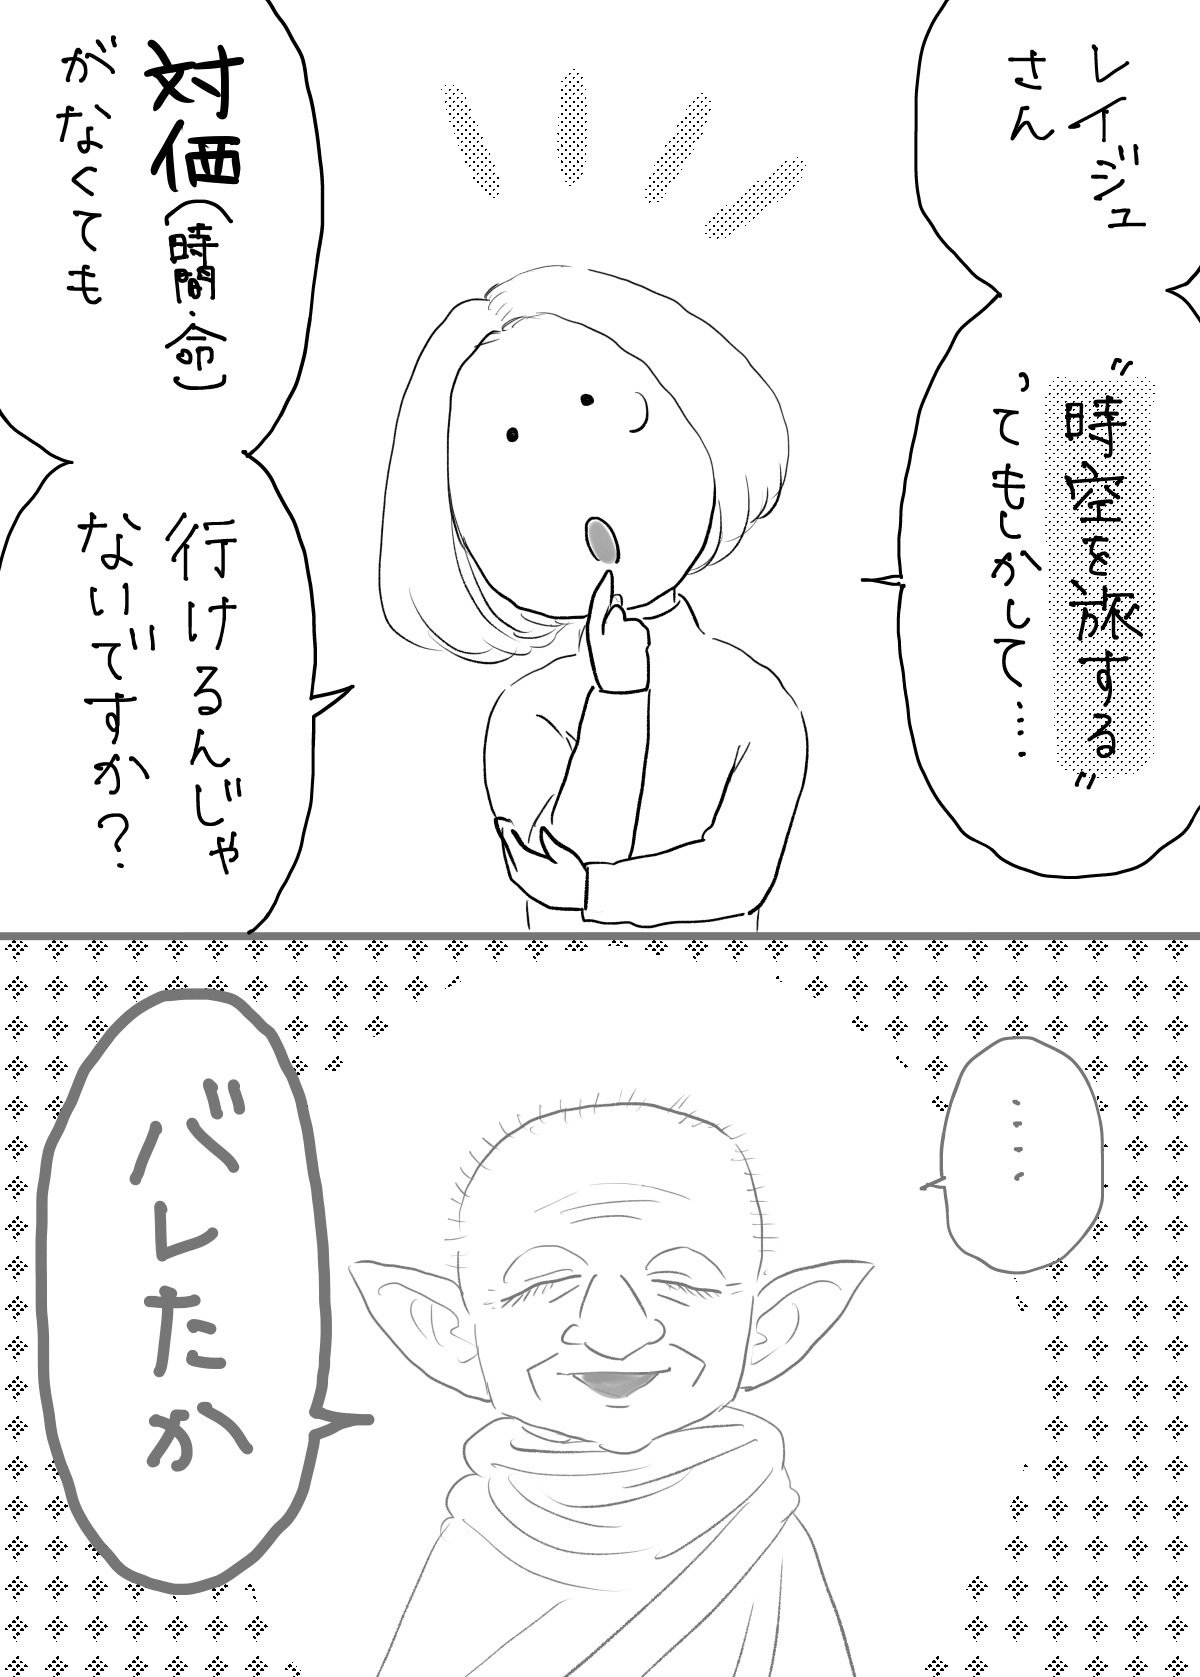 レイジュ
さん
〝時空を旅する〟
ってもしかして…‥
対価(時間・命)
がなくても
行けるんじゃ
ないですか？
‥‥
バレたか